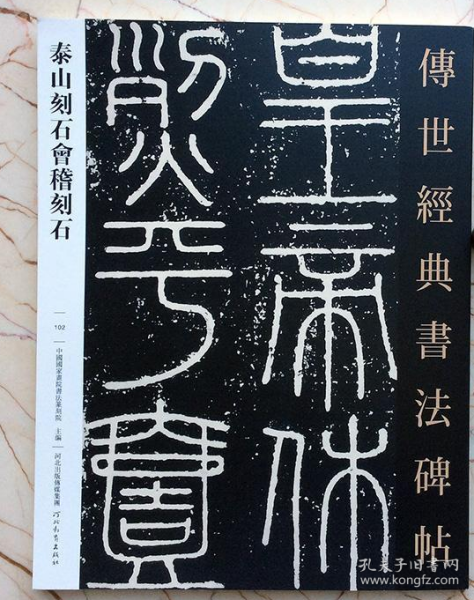 傳世經典書法碑帖
皇帝休
烈平壹
泰山刻石會稽刻石
102
中國國家畫院書法篆刻院 主編
河北出版傳媒集團
河北教育出版社
孔夫子旧书网
www.kongfz.com